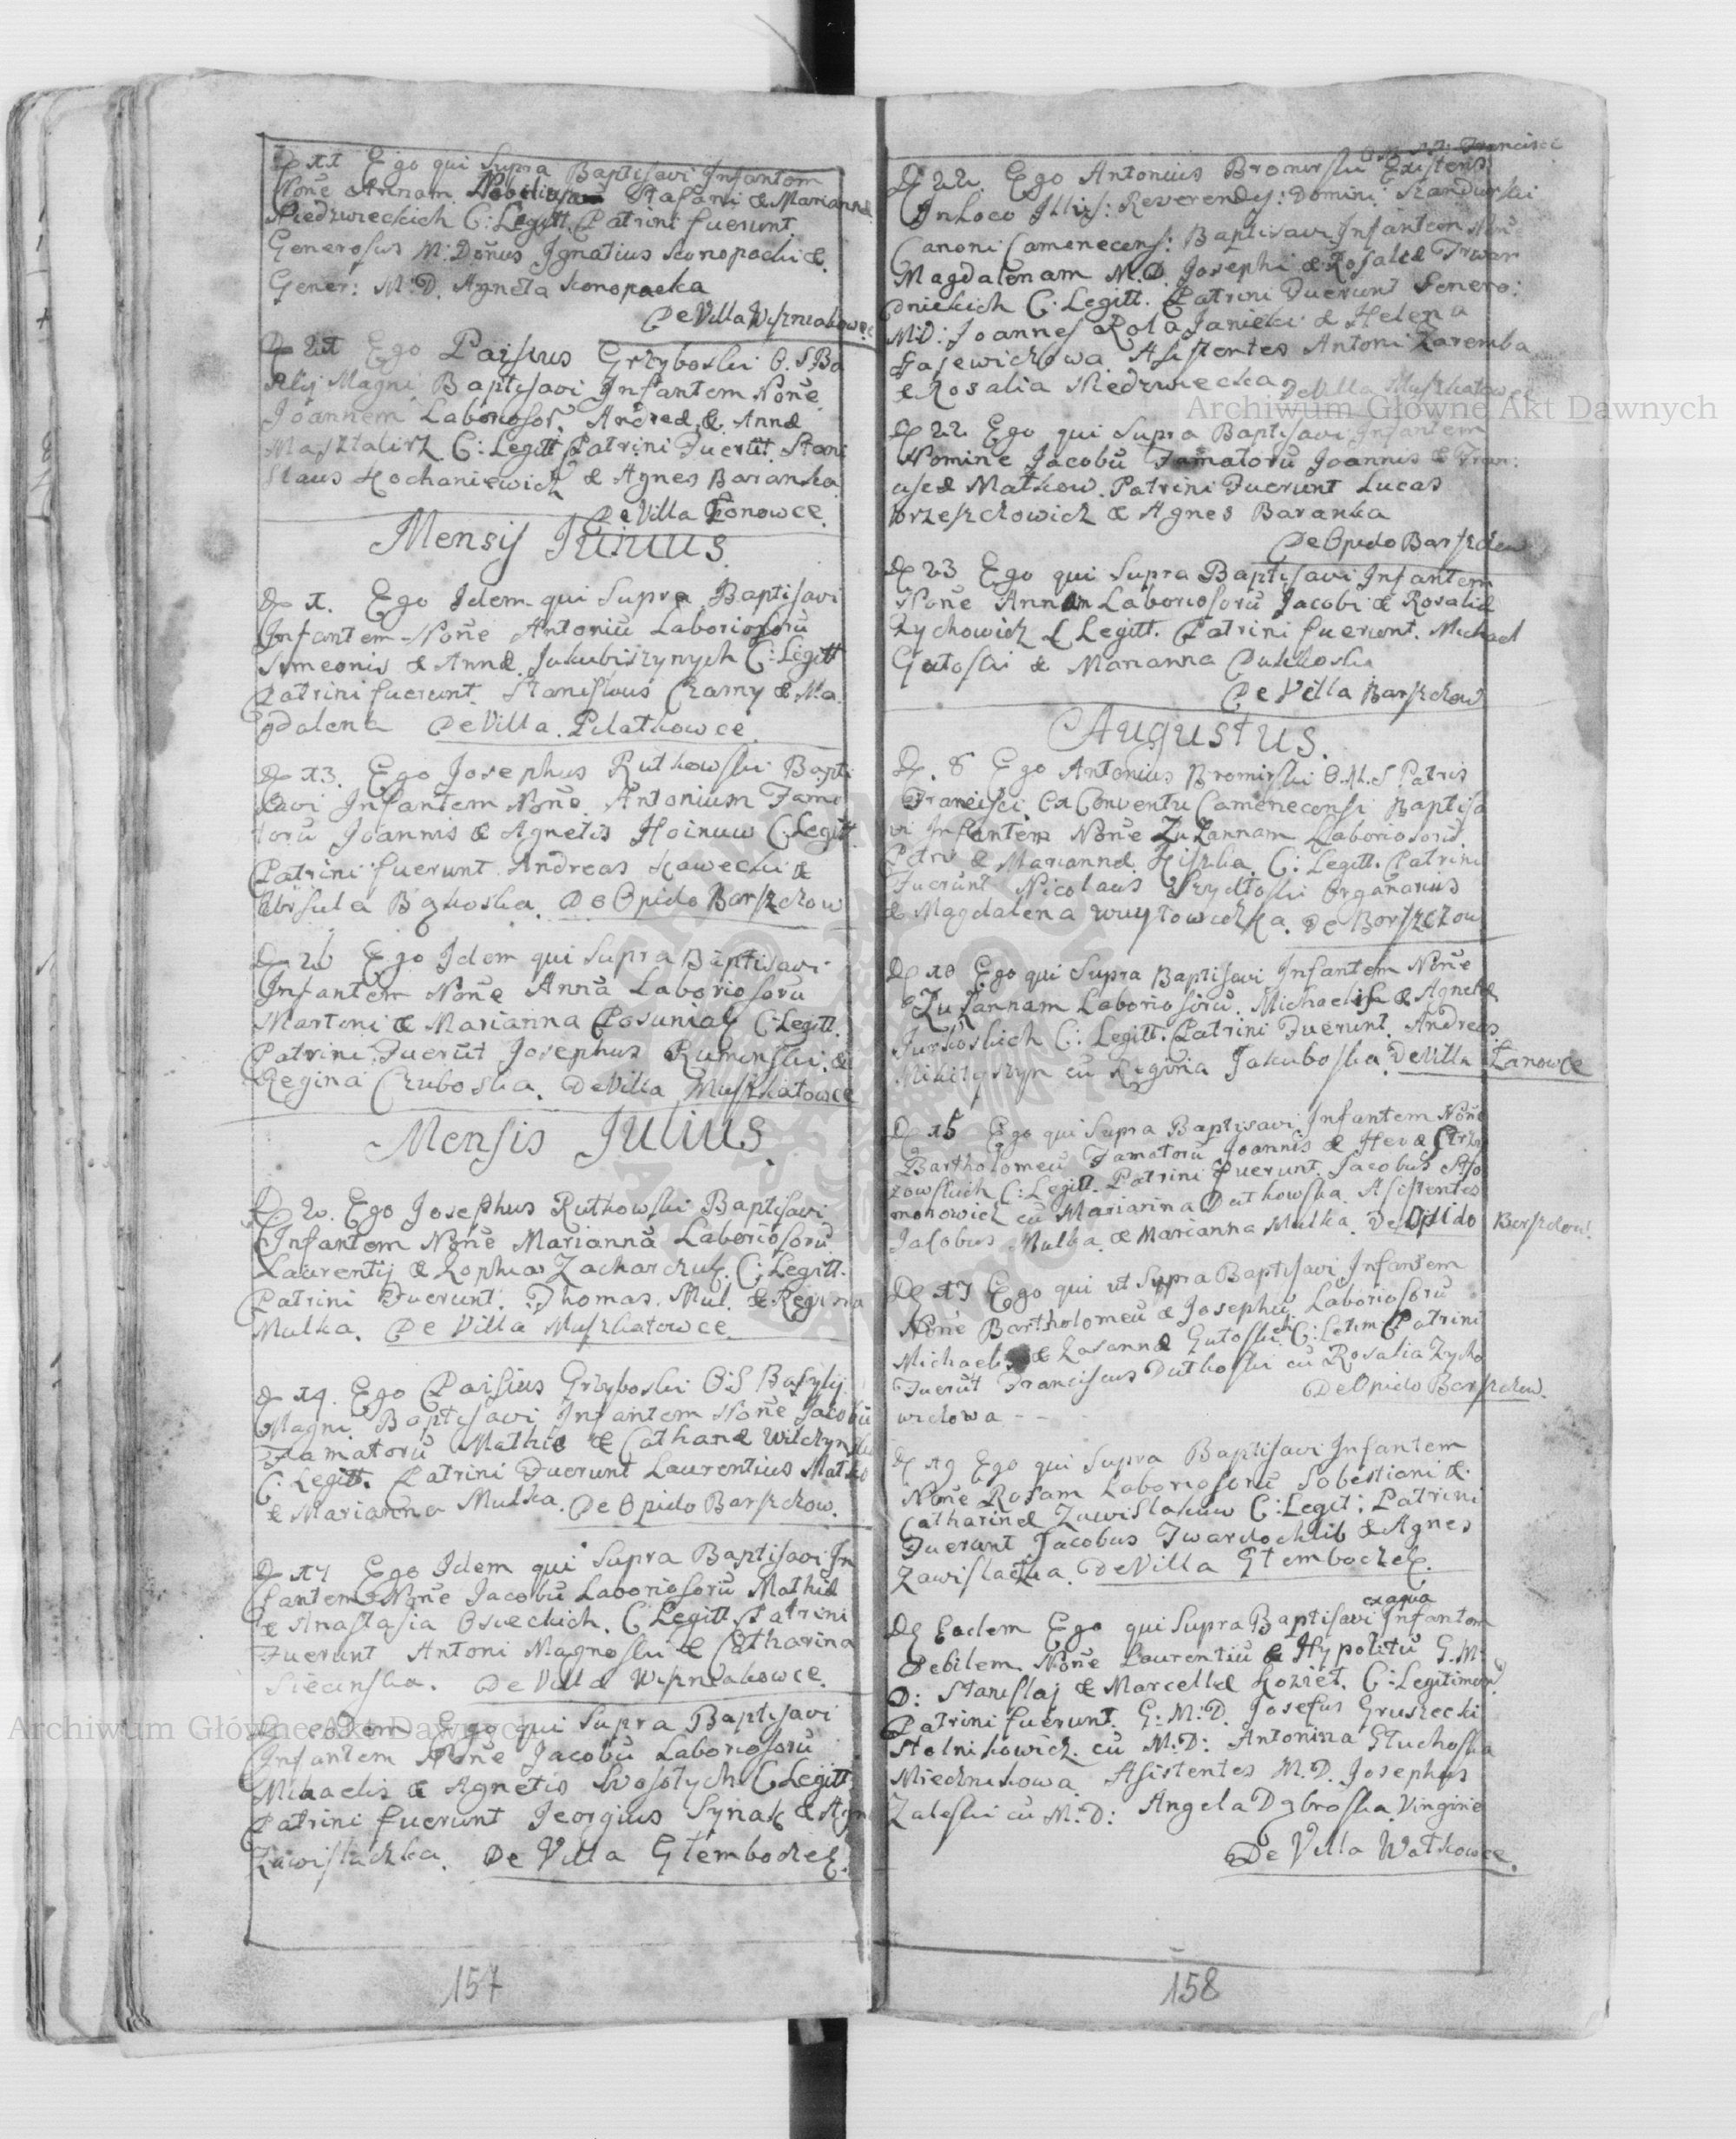 D 11 Ego qui Supra Baptisavi Infantem
None Annam Nobilium Stafani & Marianna
Niedzwieckich C: Legitt. Patrini fuerunt
Generosus M: Donus Ignatius Konopacki &
Gener: M: D. Agneta Konopacka
De Villa Wiszniakowce
D 21 Ego Paisius Grzyboski O. S Ba
silij Magni Baptisavi Infantem None
Joannem Laboriosor. Andreæ & Annæ
Masztalirz C: Legitt Patrini Fuerut Stani
slaus Kochaniewicz & Agnes Baranka
De Villa Łonowce
Mensis Junius
D 1. Ego Idem qui Supra Baptisavi
Infantem None Antoniu Laboriosoru
Simeonis & Annæ Jakubiszynych C: Legitt
Patrini fuerunt Stanislaus Czarny & Ma
gdalena De Villa Pilatkowce
D 13. Ego Josephus Rutkowski Bapti
savi Infantem None Antonium Fama
toru Joannis & Agnetis Hoinuw C: Legitt.
Patrini fuerunt Andreas Kawecki &
Ursula Bąkoska. De Opido Barszczow
D 26 Ego Idem qui Supra Baptisavi
Infantem None Anna Laboriosoru
Martini & Marianna Posuniak C: Legitt.
Patrini Fuerut Josephus Ruminski &
Regina Czuboska. De Villa Muszkatowce
Mensis Julius
D 2. Ego Josephus Rutkowski Baptisavi
Infantem None Marianna Laboriosoru
Laurentij & Zophia Zacharczuk C: Legitt.
Patrini Fuerunt. Thomas Mul. & Regina
Mulka. De Villa Muszkatowce
D 14. Ego Paisius Grzyboski O: S Basylij
Magni Baptisavi Infantem None Jacobu
Famatoru Mathiæ & Catharæ Wilczynski
C: Legitt. Patrini Fuerunt Laurentius Matko
& Marianna Mulka. De Opido Barszczow.
D 17 Ego Idem qui Supra Baptisavi In
fantem None Jacobu Laboriosoru Mathiæ
& Anastasia Osieckich. C Legitt Patrini
Fuerunt Antoni Magnoski & Catharina
Siecinska. De Villa Wiszniakowce
D eodem Ego qui Supra Baptisavi
Infantem None Jacobu Laboriosoru
Michaelis & Agnetis Wosołych C Legitt
Patrini fuerunt Jeorgius Synak & Agn
Zawislaczka. De Villa Głemboczek.
157
O. M. S. P. Francisci
D 22. Ego Antonius Bromirski Existens
In Loco Illis: Reverendis: Domini Skandurski
Canoni Camenecens: Baptisavi Infantem None
Magdalenam M. D. Josephi & Rosaliæ Trwar
donickich C: Legitt. Patrini Fuerunt Genero:
M: D: Joannes Rola Janicki & Helena
Fasewiczowa. Asistentes Antoni Zaremba
& Rosalia Niedzwiecka De Villa Muszkatowce
D 22 Ego qui Supra Baptisavi Infantem
Nomine Jacobu Famatoru Joannis & Fran:
cisæ Matkow. Patrini Fuerunt Lucas
Brzeszchowicz & Agnes Baranka
De Opido Barszczow
D 23 Ego qui Supra Baptisavi Infantem
None Annam Laboriosoru Jacobi & Rosaliæ
Zychowicz C Legitt. Patrini fuerunt. Michael
Gutoski & Marianna Dutkoska
De Villa Barszczow
Augustus.
D. 8 Ego Antonius Bromirski O. M. S Patris
Francisci ex Conventu Camenecensi Baptisa
vi Infantem None Zuzannam Laboriosoru
Petri & Mariannæ Kiszka C: Legitt. Patrini
Fuerunt Nicolaus Szydłoski Organarius
& Magdalena Wuytowiczka. De Borszczow
D 10 Ego qui Supra Baptisavi Infantem None
Zuzannam Laboriosoru Michaelis & Agnetæ
Jurkoskich C: Legitt. Patrini Fuerunt. Andreas
Mikityszyn cu Regina Jakuboska. De Villa Łanowce
D 15 Ego qui Supra Baptisavi Infantem None
Bartholomeu Famatoru Joannis & Hevæ Strzy
zowskich C: Legitt. Patrini Fuerunt Jacobus Szy
monowicz cu Marianna Dutkowska. Asistentes
Jacobus Mulka & Marianna Mulka. De Opido Barszczow.
D 17 Ego qui ut Supra Baptisavi Infantem
None Bartholomeu & Josephu Laboriosoru
Michaelis & Zosannæ Gutoskich C: Letim Patrini
Fuerut Franciscus Dutkoski cu Rosalia Zycho
wiczowa - - De Opido Barszczow.
D 19 Ego qui Supra Baptisavi Infantem
None Rosam Laboriosoru Sobestiani &
Catharinæ Zawislakuw C: Legit: Patrini
Fuerunt Jacobus Twardochlib & Agnes
Zawislaczka. De Villa Głemboczek.
D Eodem Ego qui Supra Baptisavi ex aqua Infantem
Debilem None Laurentiu & Hypolitu G. M:
D: Stanislaj & Marcellæ Kozieł. C: Legitimoru
Patrini fuerunt. G: M: D. Josefus Gruszecki
Stolnikowicz cu M: D: Antonina Głuchoska
Miecznikowa. Asistentes M. D. Josephus
Zaleski cu M: D: Angela Dąbroska Virgine
De Villa Wołkowce.
158
Archiwum Główne Akt Dawnych
Archiwum Główne Akt Dawnych